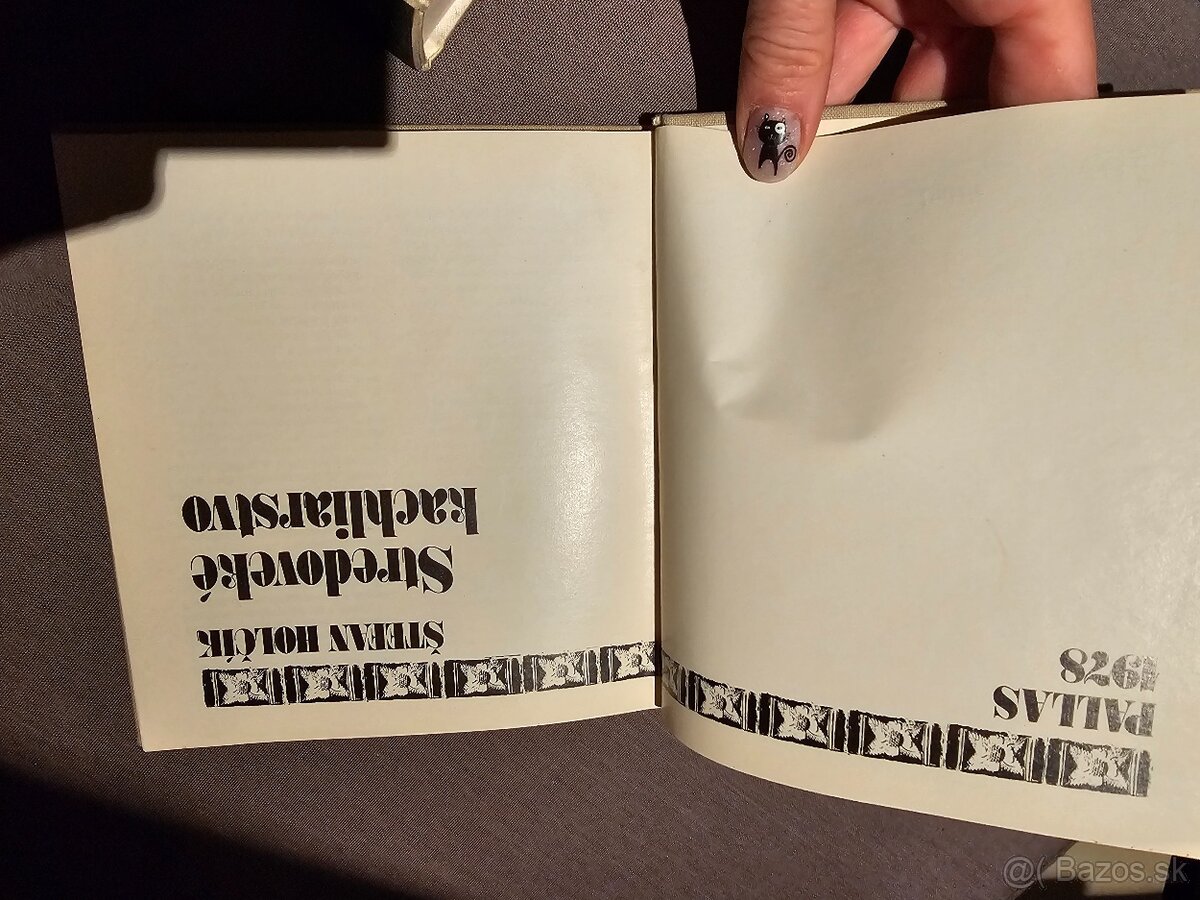 ŠTEFAN HOLČÍK
Stredoveké
kachliarstvo
PALLAS
1978
@( Bazos.sk